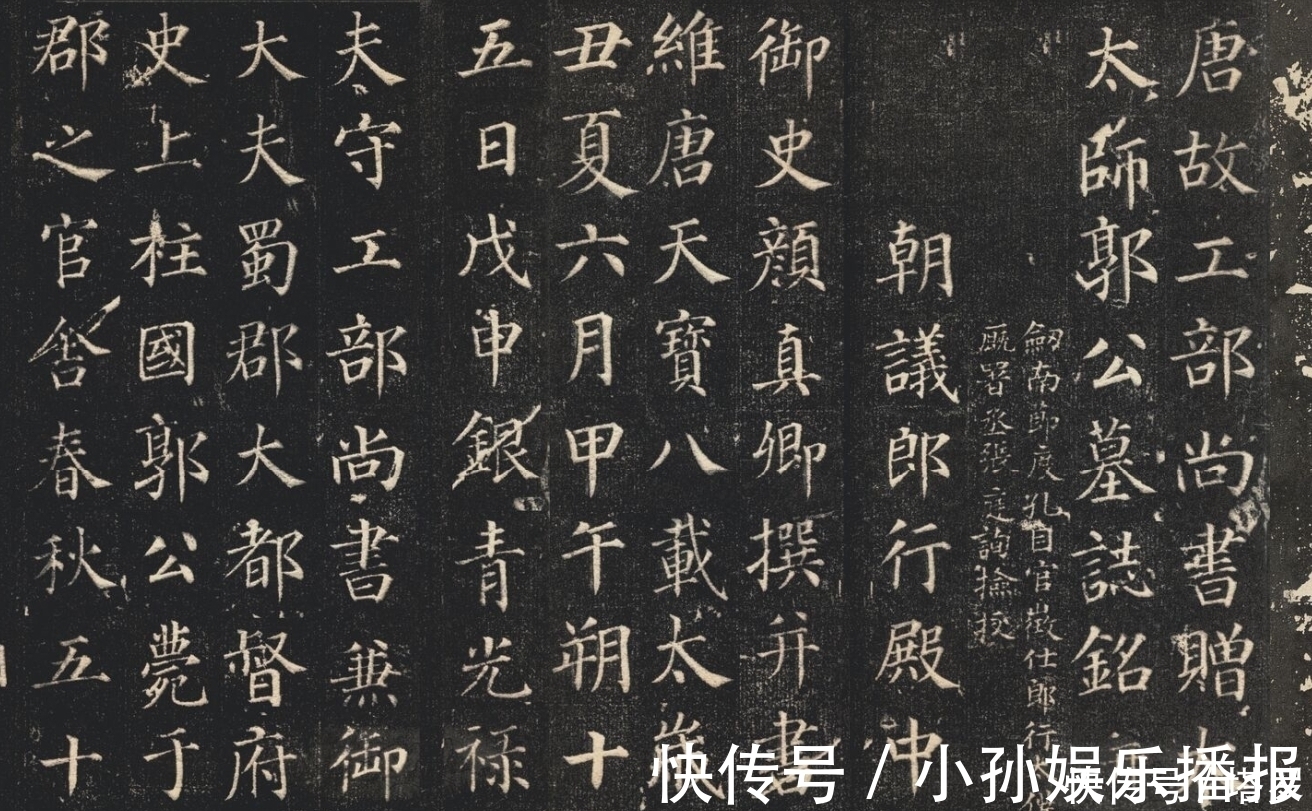 唐故工部尚書贈太
太師郭公墓誌銘
劒南節度孔目官徵仕郎行
廐署丞張庭詢撿挍
朝議郎行殿中
御史顏真卿撰并書
維唐天寶八載太歲
丑夏六月甲午朔十
五日戊申銀青光禄
大夫守工部尚書兼御
大夫蜀郡大都督府
史上柱國郭公薨于
郡之官舎春秋五十
快传号 / 小孙娱乐播报
快传号